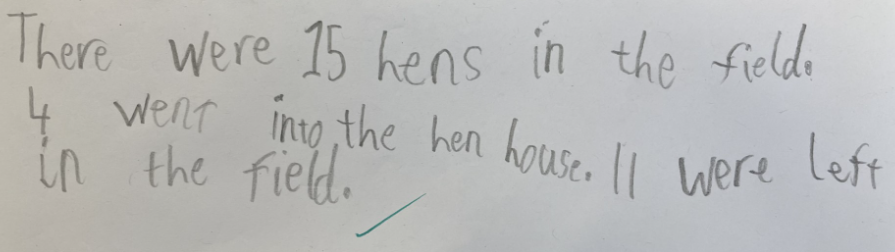 There were 15 hens in the field.
4 went into the hen house. 11 were left
in the field.